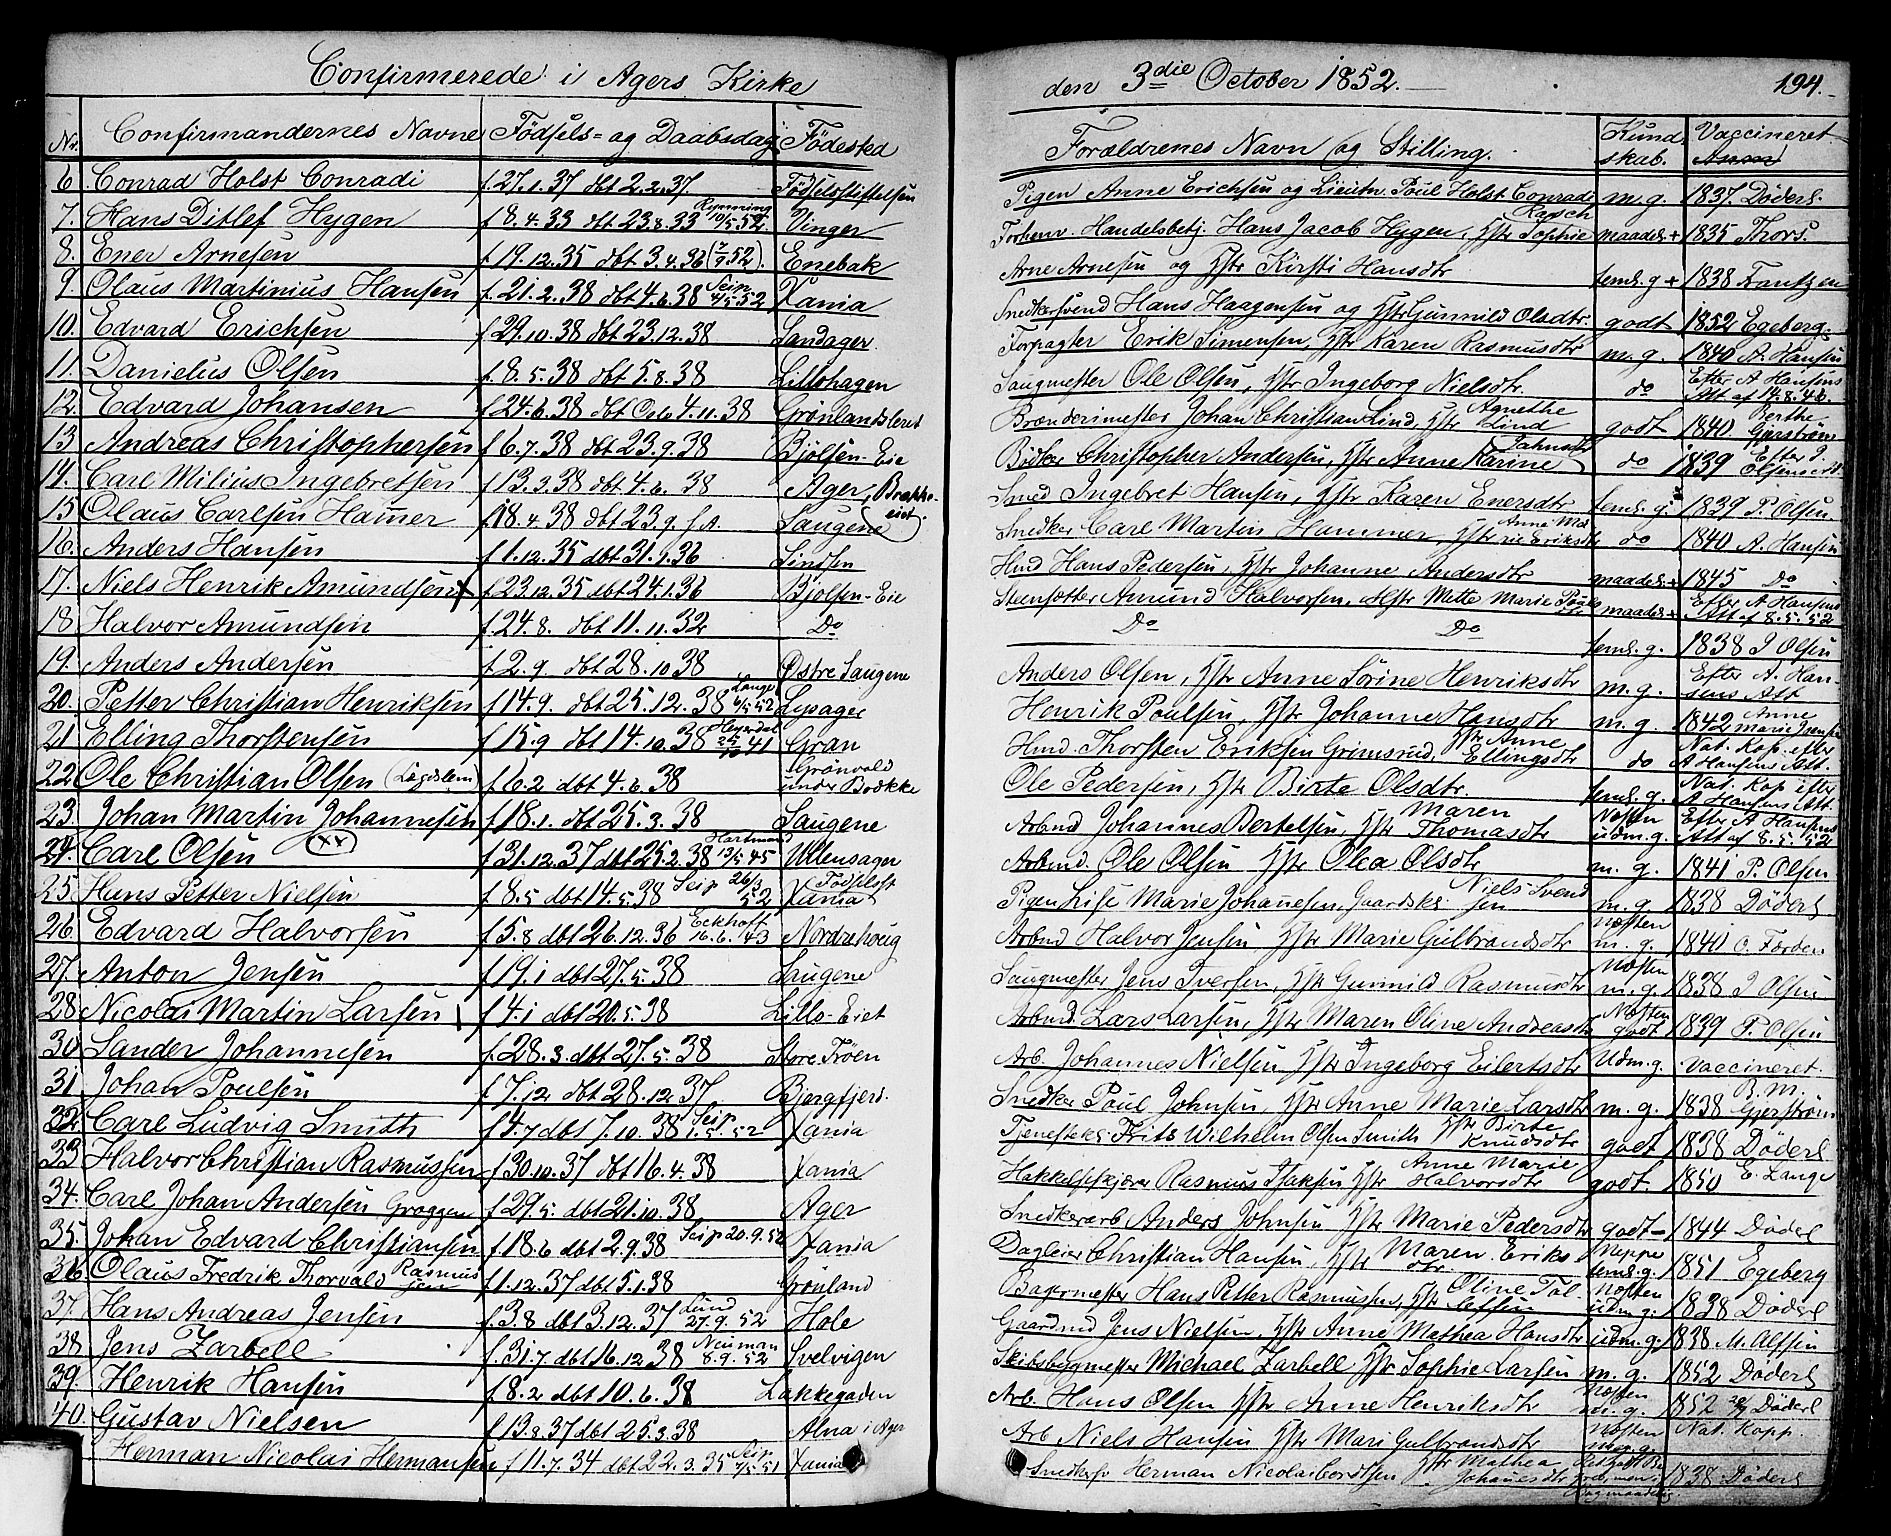 Confirmerede i Agers Kirke
Nr. Confirmandernes Navne Födsels- og Daabsdag Födested
6 Conrad Holst Conradi f. 27.1.37 dbt 2.2.37. Födselsstiftelsen
7. Hans Ditlef Hygen f 8.4.33 dbt 23.8.33 Rynning 10/5 52 Vinger
8. Ener Arnesen f 19.12.35 dbt 3.4.36 Enebak
9. Olaus Martinius Hansen f. 21.2.38 dbt 4.6.38 Seip 4/5.52 Xania
10. Edvard Erichsen f 29.10.38 dbt 23.12.38 Sandager
11. Danielus Olsen f. 8.5.38 dbt 5.8.38 Lillohagen
12. Edvard Johansen f 24.6.38 dbt Oslo 4.11.38 Grønlandsleret
13 Andreas Christophersen f 6.7.38 dbt 23.9.38 Bjølsen-Eie
14. Carl Milius Ingebretsen f 13.3.38 dbt 4.6.38 Ager, Brække-
eiet.
15 Olaus Carlsen Hamer f 18.4.38 dbt 23.9. s.A. Saugene
16. Anders Hansen f 1.12.35 dbt 31.1.36 Sindsen
17. Niels Henrik Amundsen f 23.12.35 dbt 24.1.36 Bjølsen-Eie
18 Halvor Amundsen f. 24.8. dbt 11.11.32 Do
19. Anders Andersen f 2.9. dbt 28.10.38 Østre Saugene
20. Petter Christian Henriksen f 14.9. dbt 25.12.38 Lange 6/5 52 Lysager
21 Elling Thorstensen f 15.9 dbt 14.10.38 Gran
22 Ole Christian Olsen (Lægdslem) f 6.2 dbt 4.6.38 Grønvold
under Bække
23. Johan Martin Johannesen f 18.1. dbt 25.3.38 Saugene
24. Carl Olsen (xx) f 31.12.37 dbt 25.2.38 13/5 45 Ullensager
25 Hans Petter Nielsen f 8.5 dbt 14.5.38 Seip 26/3 52 Födselsst
Xania
26 Edvard Halvorsen f 5.8 dbt 26.12.36 Eckhoff 16.6.43 Nordrehoug
27. Anton Jensen f 19.1 dbt 27.5.38 Saugene
28 Nicolai Martin Larsen f 4.1 dbt 20.5.38 Lillo-Eiet
30 Sander Johannesen f. 28.3. dbt 27.5.38 Store Tøen
31 Johan Poulsen f 7.12 dbt 28.12.37 Bjergfjerd.
32 Carl Ludvig Smith f 4.7 dbt 7.10.38 Seip 1.5.52 Xania
33 Halvor Christian Rasmussen f 30.10.37 dbt 16.4.38 Xania
34. Carl Johan Andersen Groggen f 29.5. dbt 21.10.38 Ager
35. Johan Edvard Christiansen f 18.6 dbt 2.9.38 Seip 20.9.52 Xania
36 Olaus Fredrik Thorvald Rasmussen f 1.12.37 dbt 5.1.38 Grönland
37. Hans Andreas Jensen f. 3.8 dbt 3.12.37 Lund 27.9.52 Hole
38 Jens Zarbell f. 31.7. dbt 16.12.38 Neuman 8.9.52 Svelvigen
39. Henrik Hansen f 8.2 dbt 10.6.38 Lakkegaden
40. Gustav Nielsen f 13.8.37 dbt 25.3.38 Alna i Ager
Herman Nicolai Hermansen f 11.7.34 dbt 22.3.35 Seip Xania
den 3die October 1852. 194.
Forældrenes Navn og Stilling. Kundskab. Vaccineret
Pigen Anne Erichsen og Lieutn. Poul Holst Conradi m.g. 1837. Döderl.
Forhenv. Handelsbetj. Hans Jacob Hygen, Hstr Sophie maadel + 1835 Thors.
Arne Arnesen og Hstr Kirsti Hansdtr teml. g + 1838 Frantzen
Snedkersvend Hans Haagensen og Hstr Gunnild Olsdtr. godt 1852 Egeberg.
Forpagter Erik Simensen, Hstr Karen Rasmusdtr m.g. 1840 A. Hansen
Saugmester Ole Olsen, Hstr Ingeborg Nielsdtr. do Efter A Hansens
Att af 14.8.46.
Brænderimester Johan Christian Lind, Hstr Agnethe Lind godt 1840. Berthe Gjerstrøm
Bödker Christopher Andersen, Hstr Anne Karine do 1839 Efter J.
Smed Ingebret Hansen, Hstr Karen Enersdtr teml. g. 1839 P. Olsen.
Snedker Carl Martin Hammer, Hstr Anne Marie Eriksdtr do 1840 A. Hansen
Hmd Hans Pedersen, Hstr Johanne Andersdtr maadel. + 1845 Do
Steensætter Amund Halvorsen, Hstr Mette Marie maadel + Efter A Hansens
Att af 8.5.52
Do Do teml. g. 1838 J Olsen
Anders Olsen, Hstr Anne Sörine Henriksdtr m.g. Efter A. Han-
sens Att
Henrik Poulsen, Hstr Johanne Hansdtr m.g. 1842 Anne Marie Jensen
Hmd. Thorsten Eriksen Grimsrud, Hstr Anne Ellingsdtr do Nat. Kop. efter
A Hansens Att.
Ole Pedersen, Hstr Birte Olsdtr. teml. g. Nat. Kop efter
A Hansens Att.
Arbmd Johannes Bertelsen, Hstr Maren Thomasdtr Næsten udm. g. Efter A Hansens
Att af 8.5.52
Arbmd. Ole Olsen Hstr Olea Olsdtr m.g. 1841 P. Olsen
Pigen Lise Marie Johanesen, Gaardskl. Niels Svendsen m.g 1838 Döderl
Arbmd Halvor Jensen Hstr Marie Gulbrandsdtr Næsten m.g. 1840 O. Forden
Saugmester Jens Iversen, Hstr Gunnild Rasmusdtr Næsten m.g. 1838 J Olsen
Arbmd. Lars Larsen, Hstr Maren Oline Andreasdtr Næsten godt 1839 P. Olsen
Arb. Johannes Nielsen Hstr Ingeborg Eilertsdtr Udm. g. vaccineret.
Snedker Poul Johnsen, Hstr Anne Marie Larsdtr m.g. 1838 B.M. Gjerstrøm
Tjenestekl. Frits Wilhelm Olsen Smith Hstr Birte Knudsdtr godt 1838 Döderl
Hakkelseskjærer Rasmus Isaksen Hstr Anne Marie Halvorsdtr godt. 1850 E. Lange
Snedkerarb Anders Johnsen Hstr Marie Pedersdtr godt- 1844 Döderl
Dagleier Christian Hansen, Hstr Maren Eriksdtr. Neppe teml. g. 1851 Egeberg
Bagermester Hans Petter Rasmussen, Hstr Oline Næsten udm. g. 1838 Döderl
Gaardmd Jens Nielsen Hstr Anne Mathea Hansdtr udm. g. 1838 M. Alfsen
Skibsbygmester Michael Zarbell Hstr Sophie Larsen m.g. 1852 Döderl
Arb. Hans Olsen Hstr Anne Henriksdtr Næsten 1852 Döderl
Arb Niels Hansen Hstr Mari Gulbrandsdtr Næsten meg. g. Nat. Kopp.
Herman Nicolai Hstr Mathea Johanesdtr 1838 Döderl